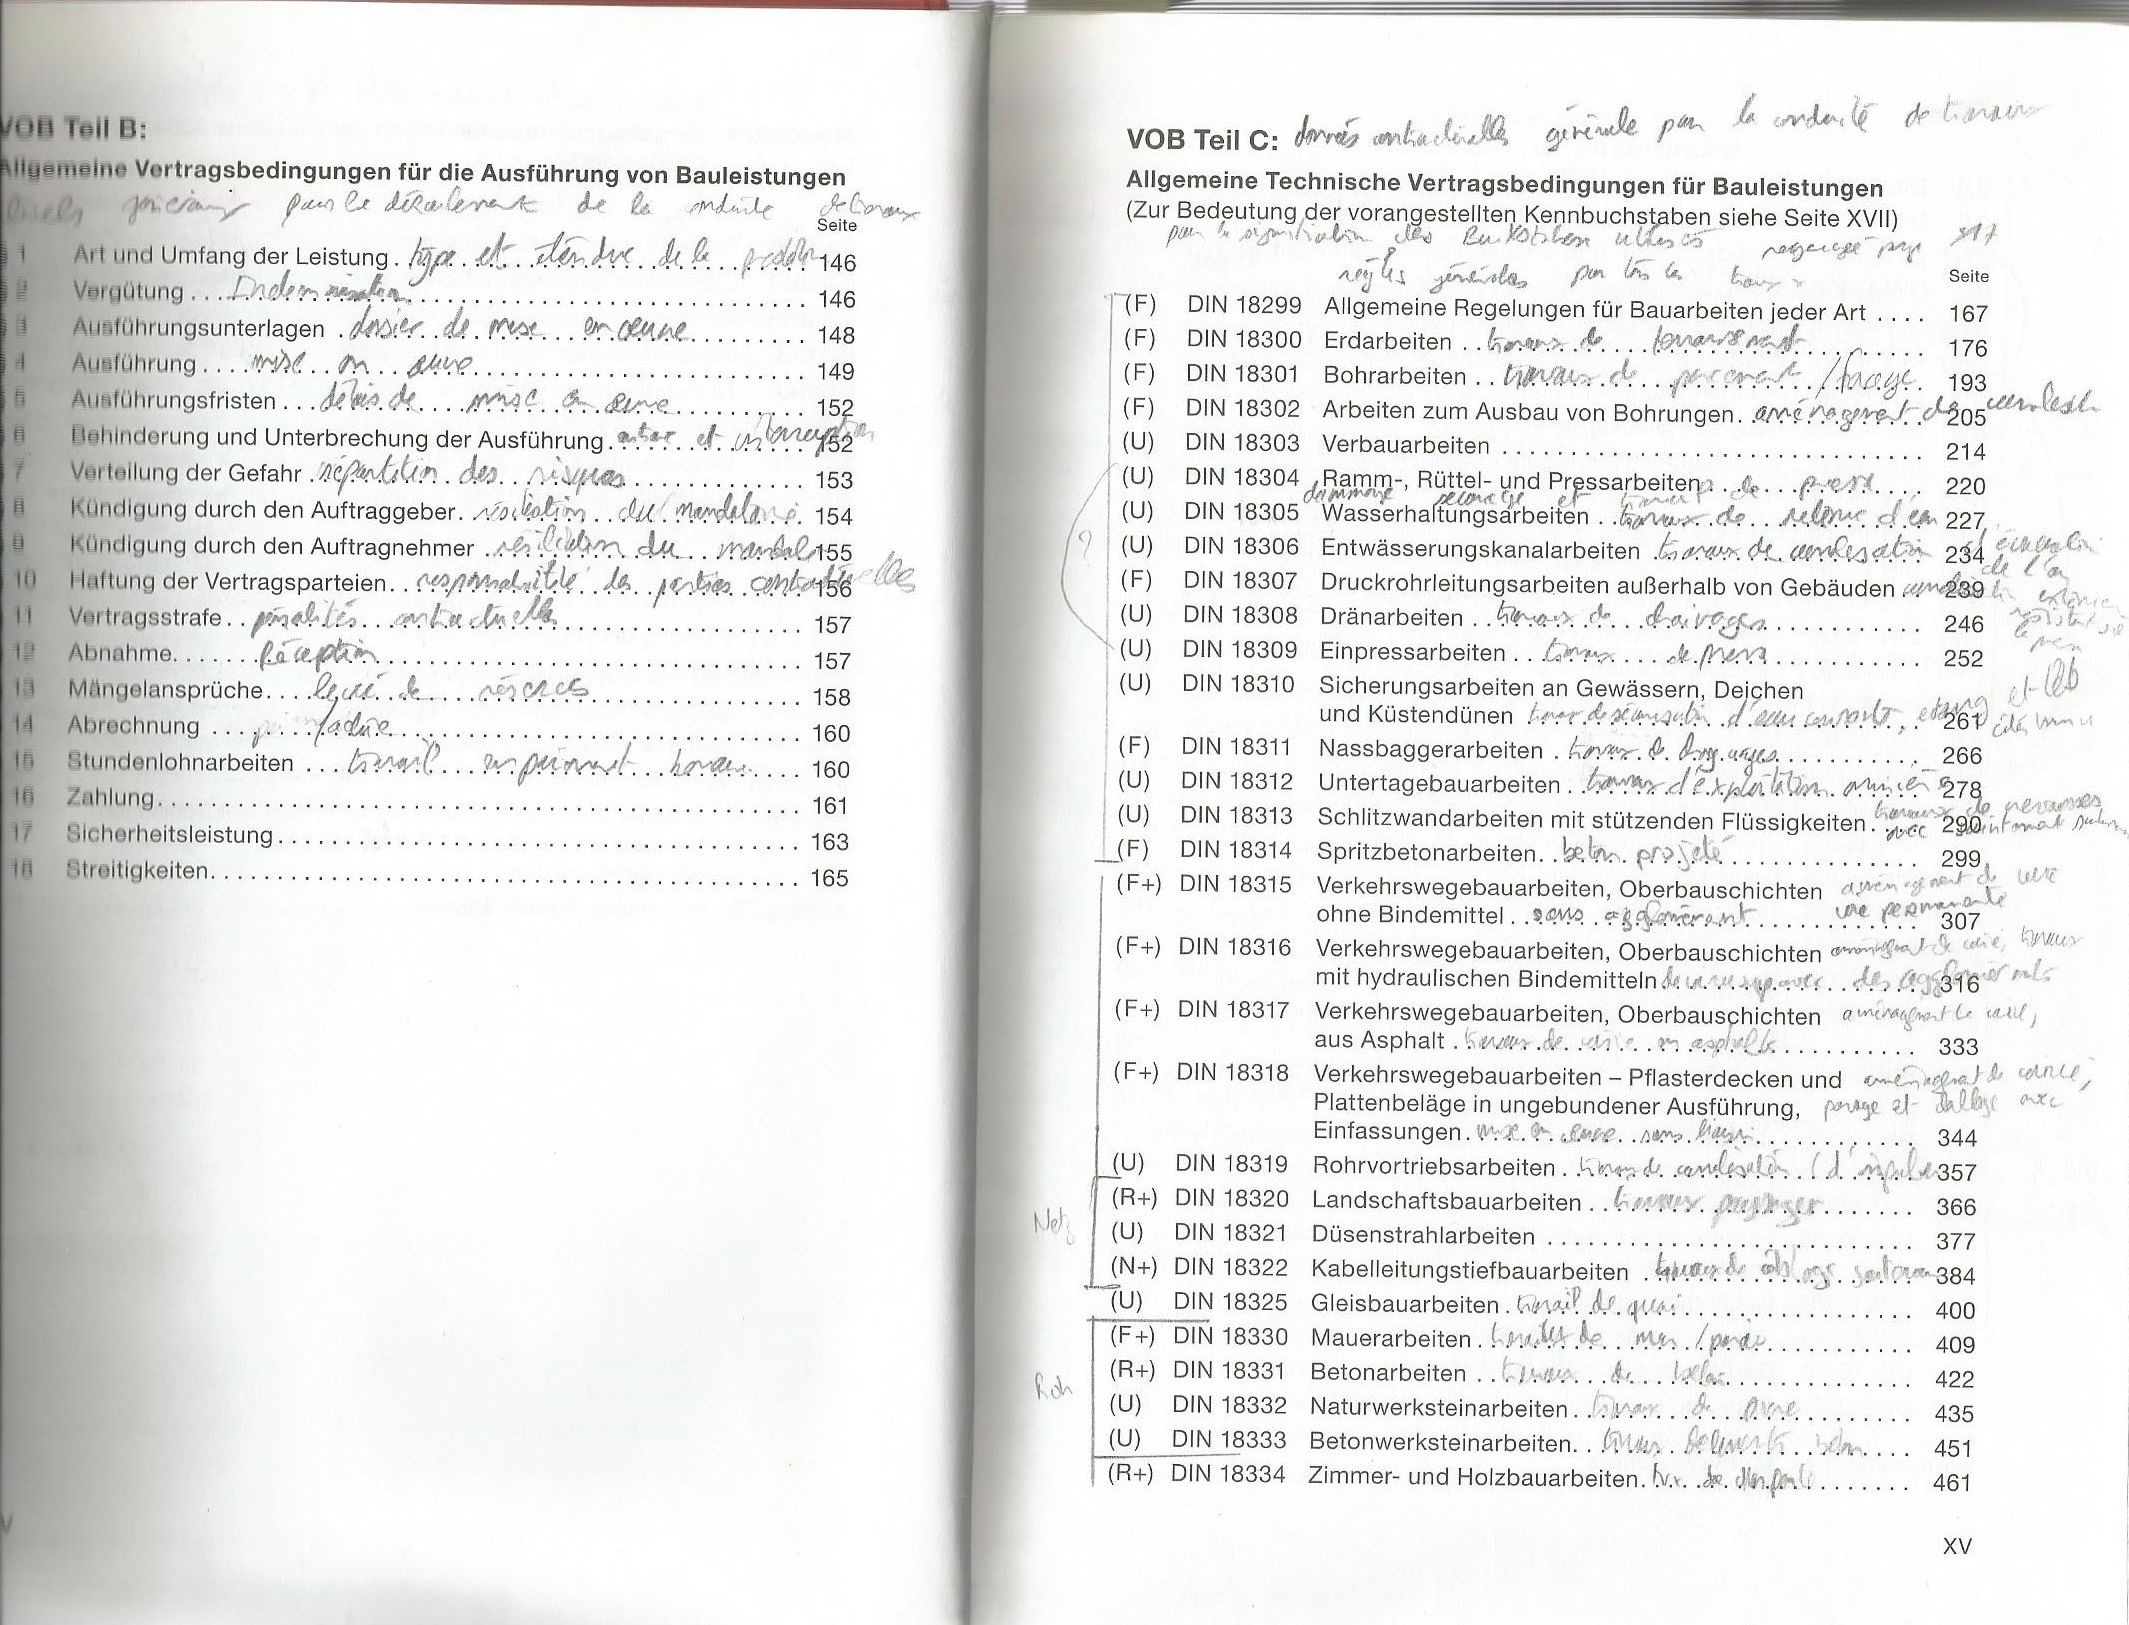 VOB Teil B:
Allgemeine Vertragsbedingungen für die Ausführung von Bauleistungen
pour le déroulement de la conduite de travaux
Seite
1 Art und Umfang der Leistung . type et étendue de la 146
2 Vergütung ... Indemnisation 146
3 Ausführungsunterlagen . dossier de mise en oeuvre 148
4 Ausführung .... mise en œuvre 149
5 Ausführungsfristen ... délais de mise en œuvre 152
6 Behinderung und Unterbrechung der Ausführung . et interruption 152
7 Verteilung der Gefahr répartition des risques 153
8 Kündigung durch den Auftraggeber . résiliation du mandataire 154
9 Kündigung durch den Auftragnehmer .. résiliation du 155
10 Haftung der Vertragsparteien .. responsabilité des parties contractuelles 156
11 Vertragsstrafe .. pénalités contractuelles 157
12 Abnahme....... Réception 157
13 Mängelansprüche .... levée de réserves 158
14 Abrechnung ... facture 160
15 Stundenlohnarbeiten ... travail 160
16 Zahlung 161
17 Sicherheitsleistung 163
18 Streitigkeiten 165
VOB Teil C: données contractuelles générale pour la conduite de travaux
Allgemeine Technische Vertragsbedingungen für Bauleistungen
(Zur Bedeutung der vorangestellten Kennbuchstaben siehe Seite XVII)
pour la signification des
règles générales pour tous les travaux
Seite
(F) DIN 18299 Allgemeine Regelungen für Bauarbeiten jeder Art .... 167
(F) DIN 18300 Erdarbeiten .. travaux de terrassement 176
(F) DIN 18301 Bohrarbeiten .. travaux de percement / forage 193
(F) DIN 18302 Arbeiten zum Ausbau von Bohrungen . aménagement de 205
(U) DIN 18303 Verbauarbeiten 214
(U) DIN 18304 Ramm-, Rüttel- und Pressarbeiten 220
et travaux de presse
(U) DIN 18305 Wasserhaltungsarbeiten .. travaux de retenue d'eau 227
(U) DIN 18306 Entwässerungskanalarbeiten . travaux de canalisation 234
(F) DIN 18307 Druckrohrleitungsarbeiten außerhalb von Gebäuden 239
(U) DIN 18308 Dränarbeiten .. travaux de drainages 246
?
(U) DIN 18309 Einpressarbeiten .. travaux de press 252
(U) DIN 18310 Sicherungsarbeiten an Gewässern, Deichen
und Küstendünen 261
(F) DIN 18311 Nassbaggerarbeiten . travaux de draguages 266
(U) DIN 18312 Untertagebauarbeiten . travaux d'exploitation 278
(U) DIN 18313 Schlitzwandarbeiten mit stützenden Flüssigkeiten . 290
(F) DIN 18314 Spritzbetonarbeiten .. beton projeté 299
(F+) DIN 18315 Verkehrswegebauarbeiten, Oberbauschichten aménagement de
ohne Bindemittel .. sans agglomérant 307
(F+) DIN 18316 Verkehrswegebauarbeiten, Oberbauschichten
mit hydraulischen Bindemitteln 316
(F+) DIN 18317 Verkehrswegebauarbeiten, Oberbauschichten aménagement de
aus Asphalt . travaux de voirie en asphalte 333
(F+) DIN 18318 Verkehrswegebauarbeiten – Pflasterdecken und aménagement de voirie,
Plattenbeläge in ungebundener Ausführung, pavage et dallage avec
Einfassungen . mise en œuvre sans 344
(U) DIN 18319 Rohrvortriebsarbeiten . travaux de canalisation 357
(R+) DIN 18320 Landschaftsbauarbeiten .. travaux paysager 366
Netz
(U) DIN 18321 Düsenstrahlarbeiten 377
(N+) DIN 18322 Kabelleitungstiefbauarbeiten . travaux de 384
(U) DIN 18325 Gleisbauarbeiten . travail de quai 400
(F+) DIN 18330 Mauerarbeiten . de mur / 409
(R+) DIN 18331 Betonarbeiten .. travaux de béton 422
Roh
(U) DIN 18332 Naturwerksteinarbeiten .. travaux de pierre 435
(U) DIN 18333 Betonwerksteinarbeiten .. travaux béton 451
(R+) DIN 18334 Zimmer- und Holzbauarbeiten . trvx de charpente 461
XV